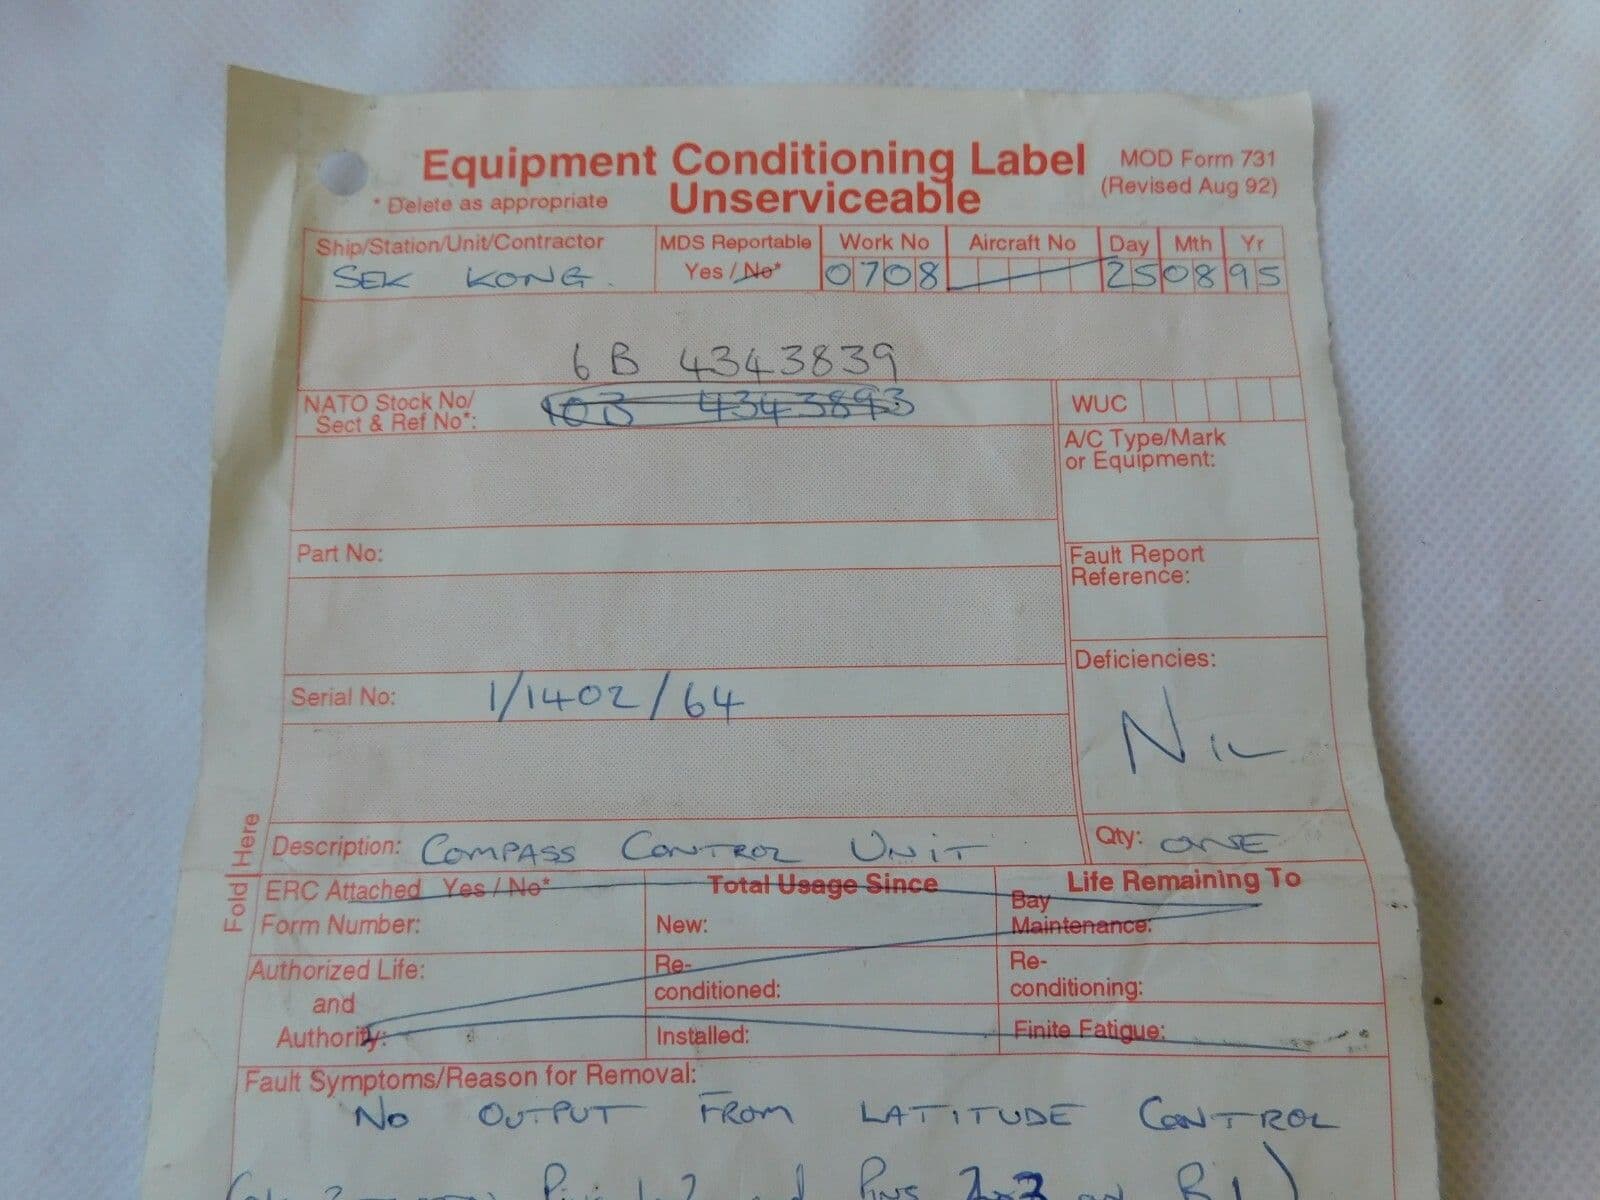 Equipment Conditioning Label
Unserviceable
MOD Form 731
(Revised Aug 92)
* Delete as appropriate
Ship/Station/Unit/Contractor
SEK KONG.
MDS Reportable
Yes / No*
Work No
0708
Aircraft No
Day Mth Yr
25 08 95
6B 4343839
NATO Stock No/
Sect & Ref No*:
10B 4343893
WUC
A/C Type/Mark
or Equipment:
Part No:
Fault Report
Reference:
Serial No: 1/1402/64
Deficiencies:
NIL
Fold Here
Description: COMPASS CONTROL UNIT
Qty: ONE
ERC Attached Yes / No*
Form Number:
Authorized Life:
and
Authority:
Total Usage Since
New:
Re-
conditioned:
Installed:
Life Remaining To
Bay
Maintenance:
Re-
conditioning:
Finite Fatigue:
Fault Symptoms/Reason for Removal:
NO OUTPUT FROM LATITUDE CONTROL